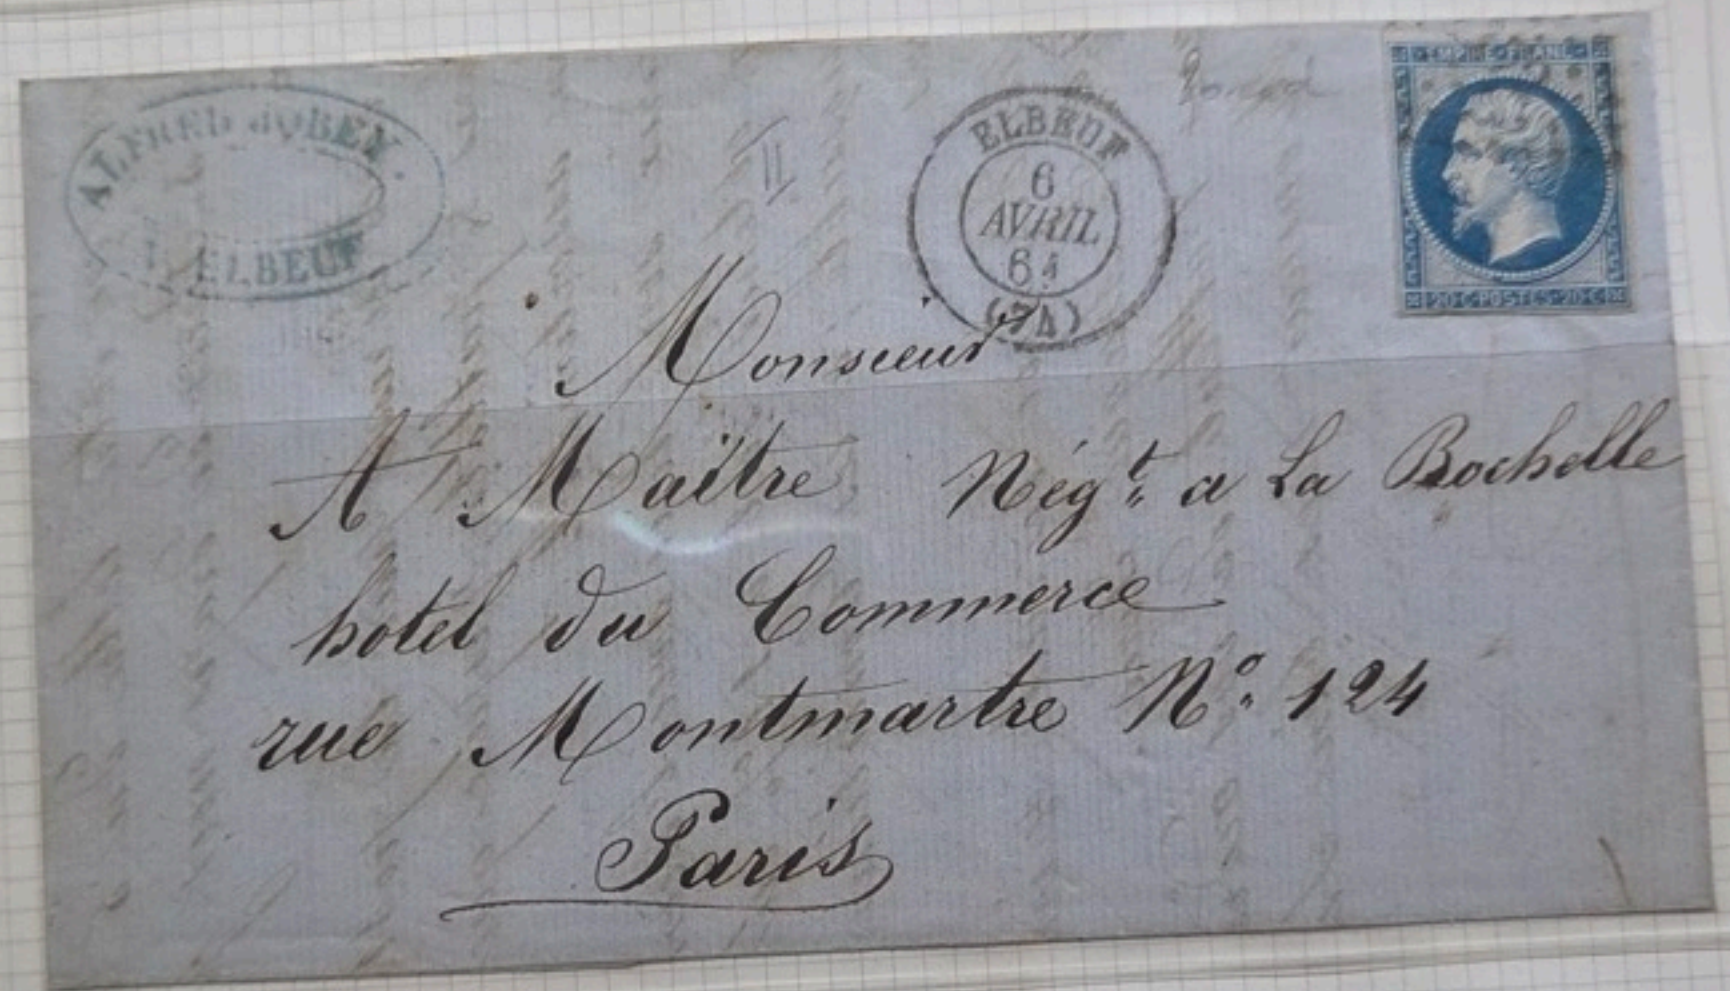 ALFRED JOBEY.
À ELBEUF
ELBEUF
6
AVRIL
61
(74)
EMPIRE FRANC
20 C POSTES 20 C
Monsieur
A Maître Négt. a La Rochelle
hotel du Commerce
rue Montmartre No. 124
Paris